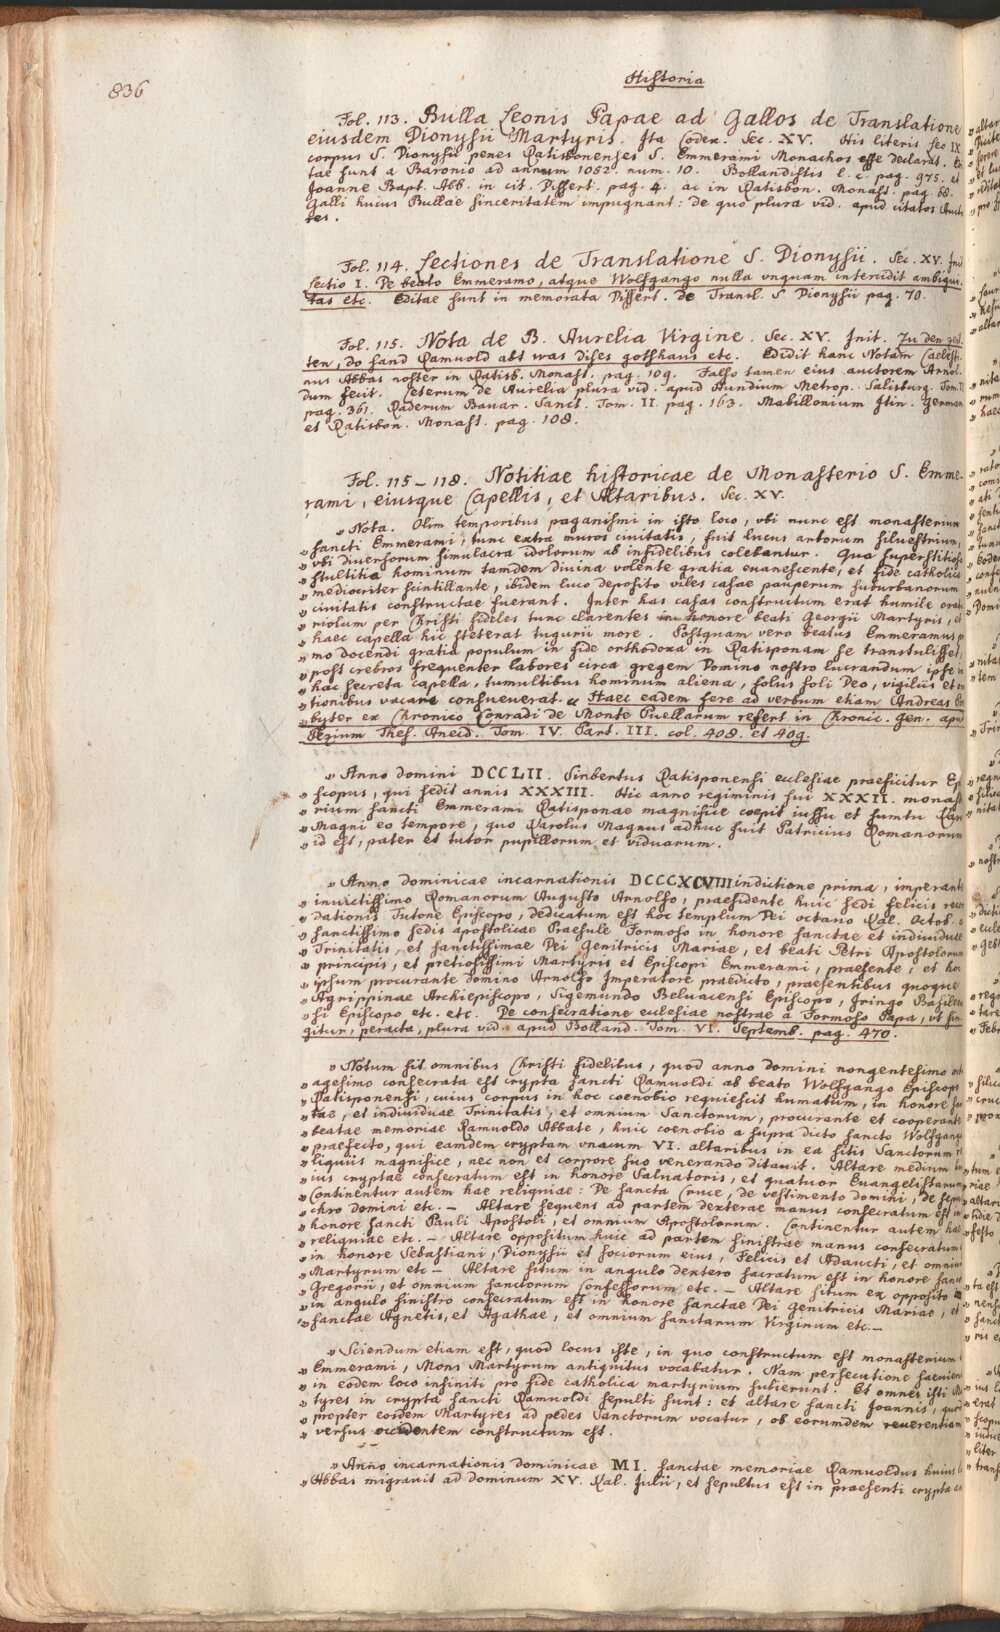 836
Historia
Fol. 113. Bulla Leonis Papae ad Gallos de Translatione
eiusdem Dionysii Martyris. Ita Codex. Sec. XV. His literis Leo IX.
corpus S. Dionysii penes Ratisbonenses S. Emmerami Monachos esse declarat. Edi
tae sunt a Baronio ad annum 1052. num. 10. Bollandistis l. c. pag. 975. et
Joanne Bapt. Abb. in cit. Dissert. pag. 4. ac in Ratisbon. Monast. pag. 68.
Galli huius Bullae sinceritatem impugnant: de quo plura vid. apud citatos Aucto
res.
Fol. 114. Lectiones de Translatione S. Dionysii. Sec. XV. Init.
Lectio I. De beato Emmeramo, atque Wolfgango nulla vnquam intercidit ambigui-
tas etc. Editae sunt in memorata Dissert. de Transl. S. Dionysii pag. 70.
Fol. 115. Nota de B. Aurelia Virgine. Sec. XV. Init. Zu den zeit-
ten, do sand Ramuold abt was dises gotshaus etc. Edidit hanc Notam Caelesti-
nus Abbas noster in Ratisb. Monast. pag. 109. Falso tamen eius auctorem Arnol-
dum fecit. Ceterum de Aurelia plura vid. apud Hundium Metrop. Salisburg. Tom. II
pag. 361. Raderum Bauar. Sanct. Tom. II. pag. 163. Mabillonium Itin. German
et Ratisbon. Monast. pag. 108.
Fol. 115–118. Notitiae historicae de Monasterio S. Emme-
rami, eiusque Capellis, et Altaribus. Sec. XV.
„Nota. Olim temporibus paganismi in isto loco, vbi nunc est monasterium
„sancti Emmerami, tunc extra muros ciuitatis, fuit lucus arborum siluestrium,
„vbi diuersorum simulacra idolorum ab infidelibus colebantur. Qua superstitiosa
„stultitia hominum tamdem diuina volente gratia euanescente, et fide catholica
„mediocriter scintillante, ibidem luco deposito viles casae pauperum suburbanorum
„ciuitatis constructae fuerant. Inter has casas constructum erat humile orato
„riolum per Christi fideles tunc clarentes in honore beati Georgii Martyris, et
„haec capella hic steterat tugurii more. Postquam vero beatus Emmeramus pri
„mo docendi gratia populum in fide orthodoxa in Ratisponam se transtulisset,
„post crebros frequenter labores circa gregem Domino nostro lucrandum ipse in
„hac secreta capella, tumultibus hominum aliena, solus soli Deo, vigiliis et ora
„tionibus vacare consueuerat.“ Haec eadem fere ad verbum etiam Andreas Pres
„byter ex Chronico Conradi de Monte Puellarum refert in Chronic. Gen. apud
Pezium Thes. Anecd. Tom. IV. Part. III. col. 408. et 409.
„Anno domini DCCLII. Sinbertus Ratisponensi ecclesiae praeficitur Epi
„scopus, qui sedit annis XXXIII. Hic anno regiminis sui XXXII. monaste
„rium sancti Emmerami Ratisponae magnifice coepit iussu et sumtu Karoli
„Magni eo tempore, quo Karolus Magnus adhuc fuit Patricius Romanorum
„id est, pater et tutor pupillorum et viduarum.
„Anno dominicae incarnationis DCCCXCVIII indictione prima, imperante
„inuictissimo Romanorum Augusto Arnolfo, praesidente huic sedi felicis recor
„dationis Tutone Episcopo, dedicatum est hoc templum Dei octauo Kal. Octob. a
„sanctissimo sedis apostolicae Praesule Formoso in honore sanctae et indiuiduae
„Trinitatis, et sanctissimae Dei Genitricis Mariae, et beati Petri Apostolorum
„principis, et pretiosissimi Martyris et Episcopi Emmerami, praesente, et hoc
„ipsum procurante domino Arnolfo Imperatore praedicto, praesentibus quoque
„Agrippinae Archiepiscopo, Sigemundo Beluacensi Episcopo, Iringo Basileen
„si Episcopo etc. etc. De consecratione ecclesiae nostrae a Formoso Papa, vt fin
gitur, peracta, plura vid. apud Bolland. Tom. VI. Septemb. pag. 470.
„Notum sit omnibus Christi fidelibus, quod anno domini nongentesimo oct
„agesimo consecrata est crypta sancti Ramuoldi ab beato Wolfgango Episcopo
„Ratisponensi, cuius corpus in hoc coenobio requiescit humatum, in honore san
„tae, et indiuiduae Trinitatis, et omnium Sanctorum, procurante et cooperante
„beatae memoriae Ramuoldo Abbate, huic coenobio a supra dicto sancto Wolfgango
„praefecto, qui eamdem cryptam vnacum VI. altaribus in ea sitis Sanctorum re
„liquiis magnifice, nec non et corpore suo venerando ditauit. Altare medium hu
„ius cryptae consecratum est in honore Saluatoris, et quatuor Euangelistarum
„Continentur autem hae reliquiae: De sancta Cruce, de vestimento domini, de sepul
„chro domini etc. – Altare sequens ad partem dexterae manus consecratum est in
„honore sancti Pauli Apostoli, et omnium Apostolorum. Continentur autem hae
„reliquiae etc. – Altare oppositum huic ad partem sinistrae manus consecratum
„in honore Sebastiani, Dionysii et sociorum eius, Felicis et Adaucti, et omnium
„Martyrum etc – Altare situm in angulo dextero sacratum est in honore sancti
„Gregorii, et omnium sanctorum Confessorum etc. – Altare situm ex opposito
„in angulo sinistro consecratum est in honore sanctae Dei Genitricis Mariae, et
„sanctae Agnetis, et Agathae, et omnium sanctarum Virginum etc. –
„Sciendum etiam est, quod locus iste, in quo constructum est monasterium
„Emmerami, Mons Martyrum antiquitus vocabatur. Nam persecutione saeuiente
„in eodem loco infiniti pro fide catholica martyrium subierunt. Et omnes isti Mar
„tyres in crypta sancti Ramuoldi sepulti sunt: et altare sancti Joannis, quod
„propter eosdem Martyres ad pedes Sanctorum vocatur, ob eorumdem reuerentiam
„versus occidentem constructum est.
„Anno incarnationis dominicae MI. sanctae memoriae Ramuoldus huius
„Abbas migrauit ad dominum XV. Kal. Julii, et sepultus est in praesenti crypta